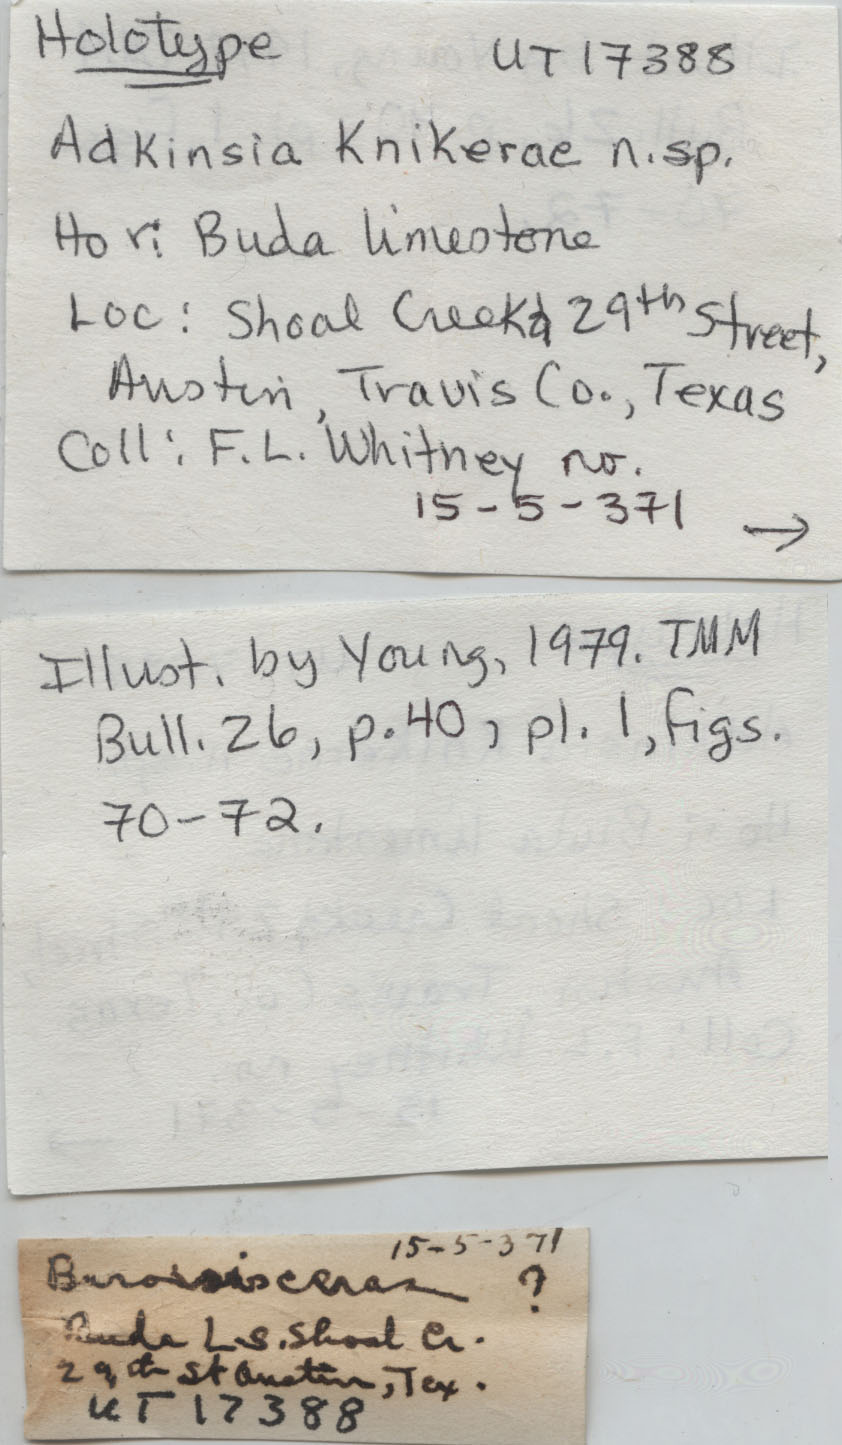 Holotype UT 17388
Adkinsia Knikerae n.sp.
Hori Buda limestone
Loc: Shoal Creek & 29th Street,
Austin, Travis Co., Texas
Coll: F.L. Whitney no.
15-5-371
→
Illust. by Young, 1979. TMM
Bull. 26, p. 40, pl. 1, figs.
70-72.
15-5-371
?
Buda L.S. Shoal Cr.
29th St Austin, Tex.
UT 17388